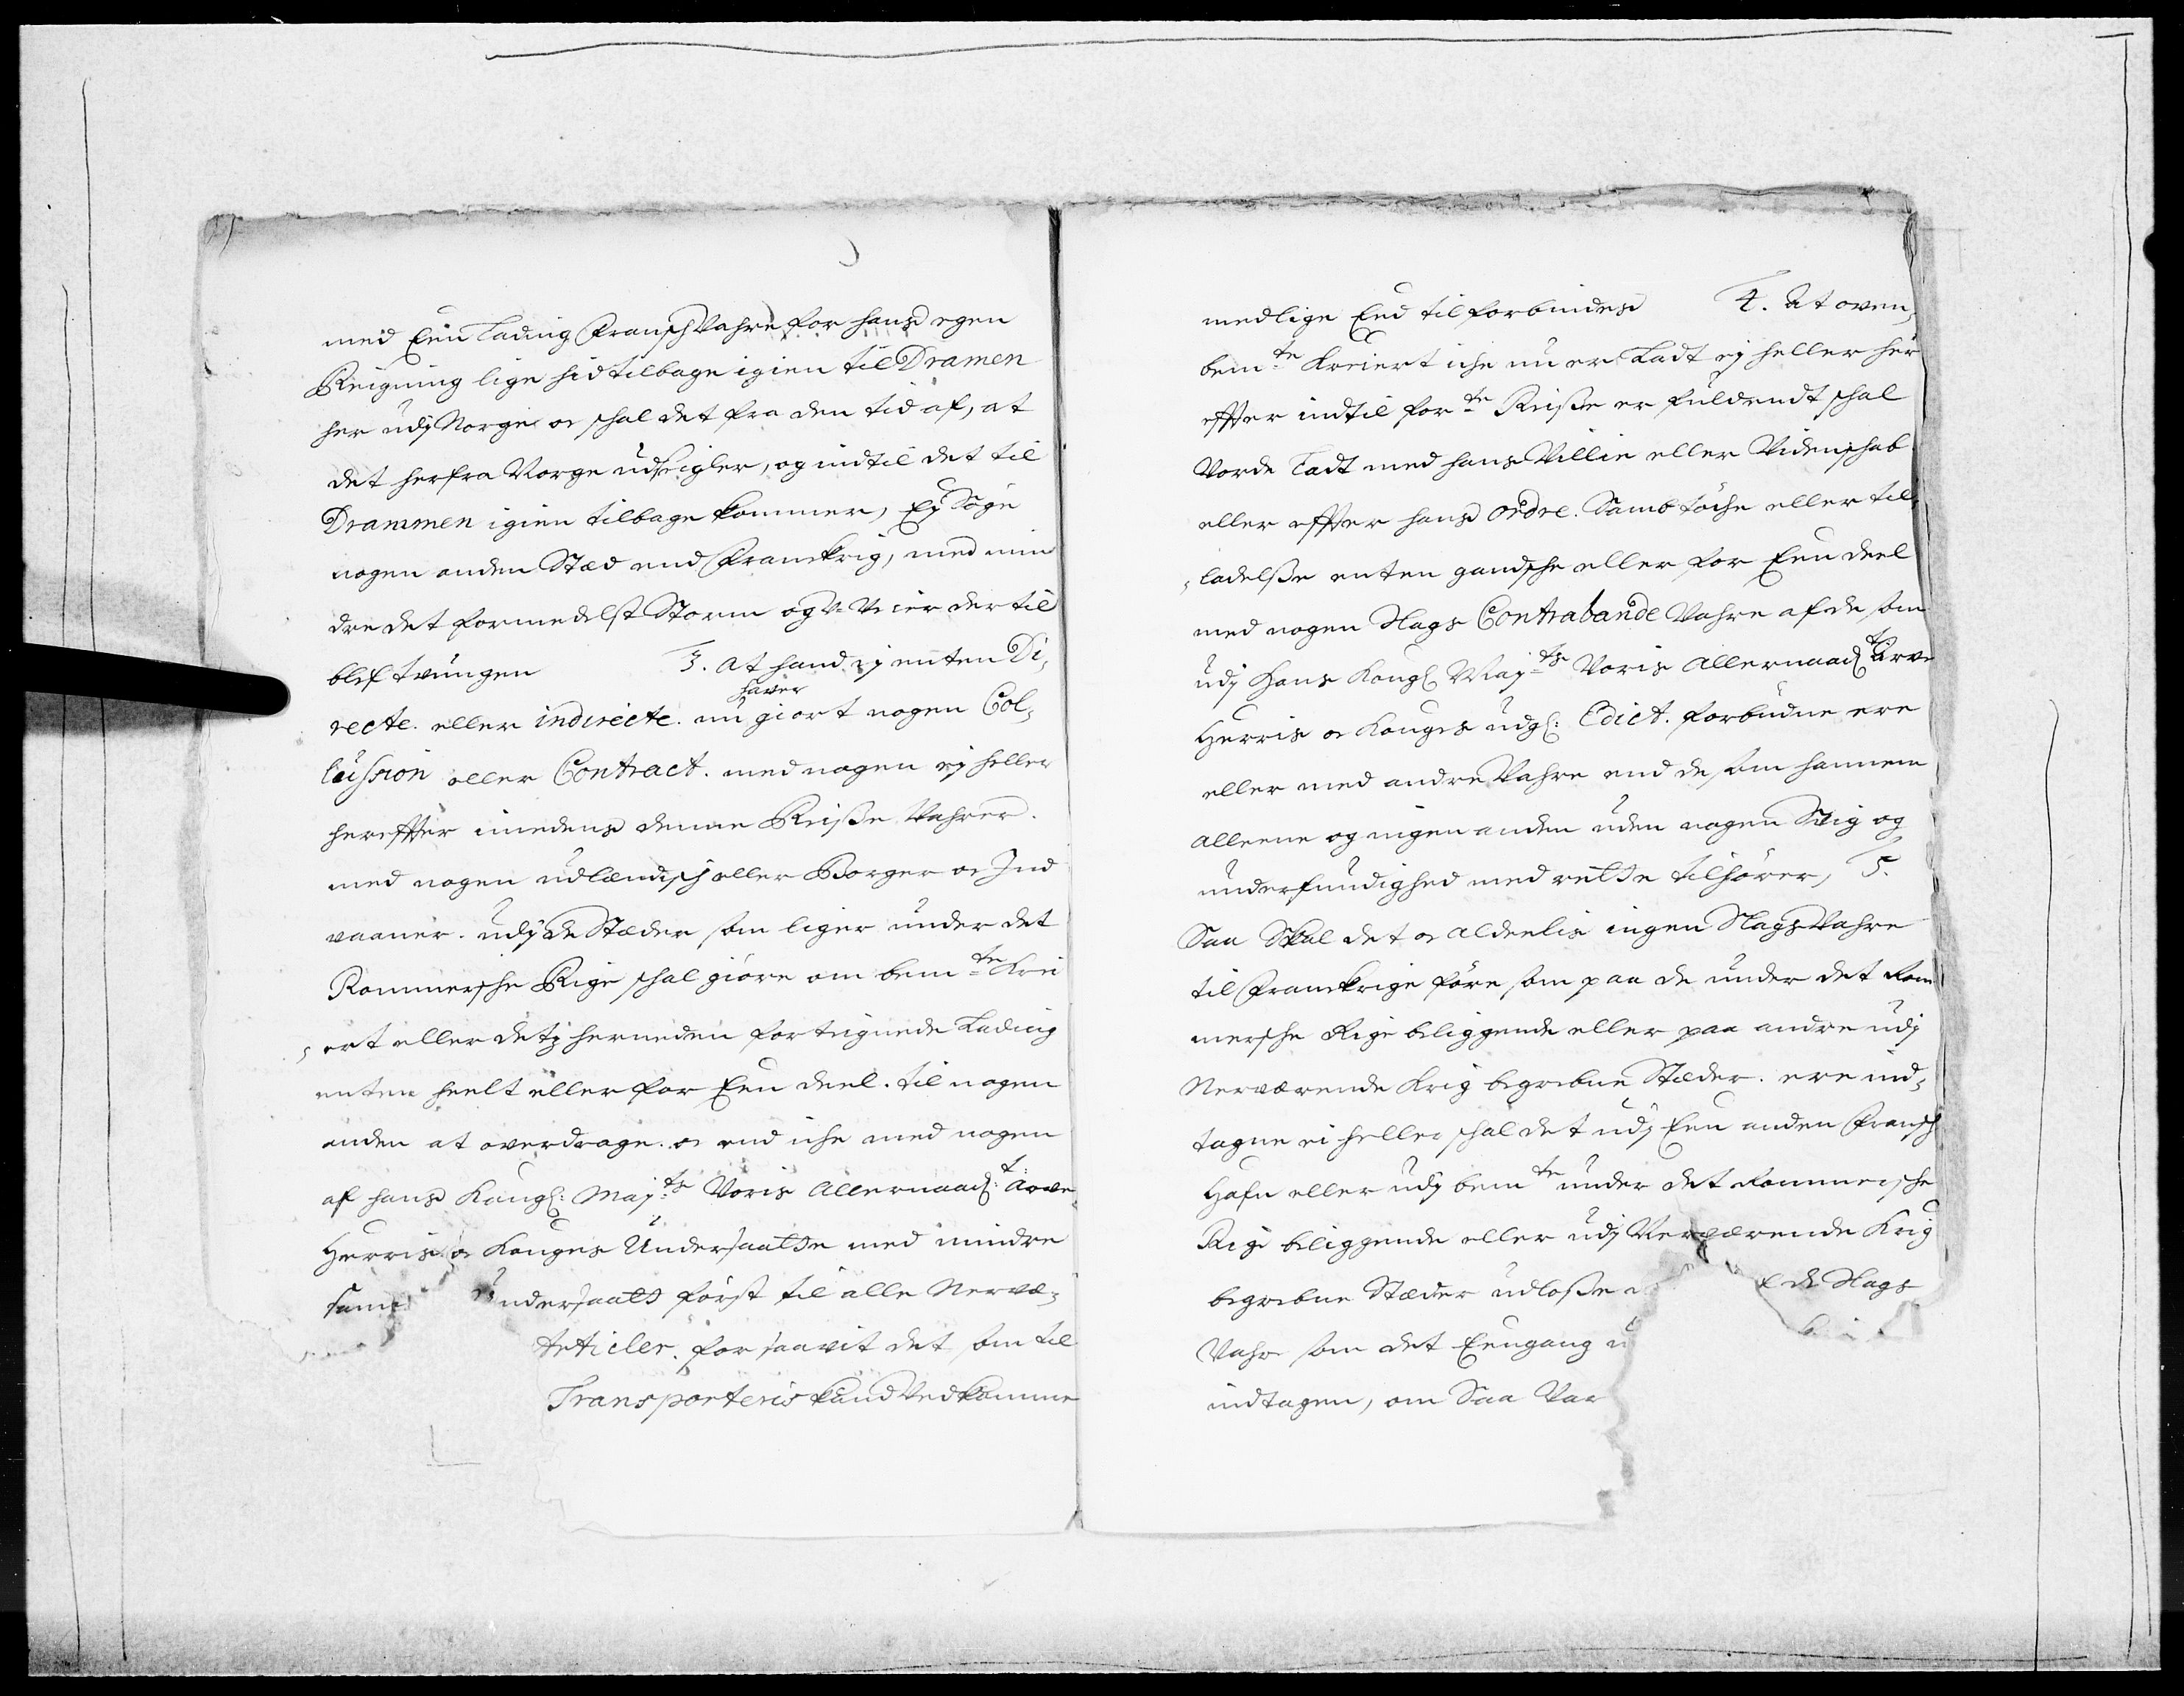 med Een Lading Fransch Vahre for hans egen
Reigning lige hid tilbage igien til Dramen
her udj Norge oc schal det fra den tid af, at
det herfra Norge udseigler, og indtil det til
Drammen igien tilbage kommer, Ej Søge
nogen anden Stæd end Franckrig, med min
dre det formedelst Storm og V Veier dertil
blef tvungen 3. At hand ej enten Di,
haver
recte. eller indirecte. nu giort nogen Col,
lussion eller Contract. med nogen ej heller
hereffter imedens denne Reiße Vahrer.
med nogen udlændisch eller Borger oc Ind
vaaner. udj de Stæder som liger under det
Rommersche Rige schal giøre om bemte Krei
ert eller detz herneden forteignede Lading
enten heelt eller for Een deel. til nogen
anden at overdrage. oc end iche med nogen
af hans Kongl: Mayts Voris Allernaad: Arve,
Herris oc Konges Undersaatte med mindre
samme Undersaatt først til alle Nervæ,
Articler. forsaavit det som til
Transporteris kand Vedkomme
medlige Eed tilforbindes 4. At oven,
bemte Kreiert iche nu er Ladt ej heller her
effter indtil forte Reiße er fuldendt schal
Vorde Ladt med hans Villie eller Videnschab
eller effter hans ordre. Samtöche eller til,
ladelße enten gandsche eller for Een deel
med nogen Slags Contrabande Vahre af de som
udj Hans Kongl Mayts Voris Allernaad Arve
Herris oc Konges udg: Edict. forbudne ere
eller med andre Vahre end de som hannem
alleene og ingen anden uden nogen Svig og
underfundighed med rette tilhører, 5.
Saa Skal det oc aldeelis ingen Slags Vahre
til Franckrige føre som paa de under det Rom
mersche Rige beliggende eller paa andre udj
Nerværende Krig begrebne Stæder. ere ind,
tagne ei heller schal det udj Een anden Fransch
Hafn eller udj bemte under det Rommersche
Rige beliggende eller udj Nerværende Krig
begrebne Stæder udloße de Slags
Vahr som det Eengang
indtagen, om Saa Var